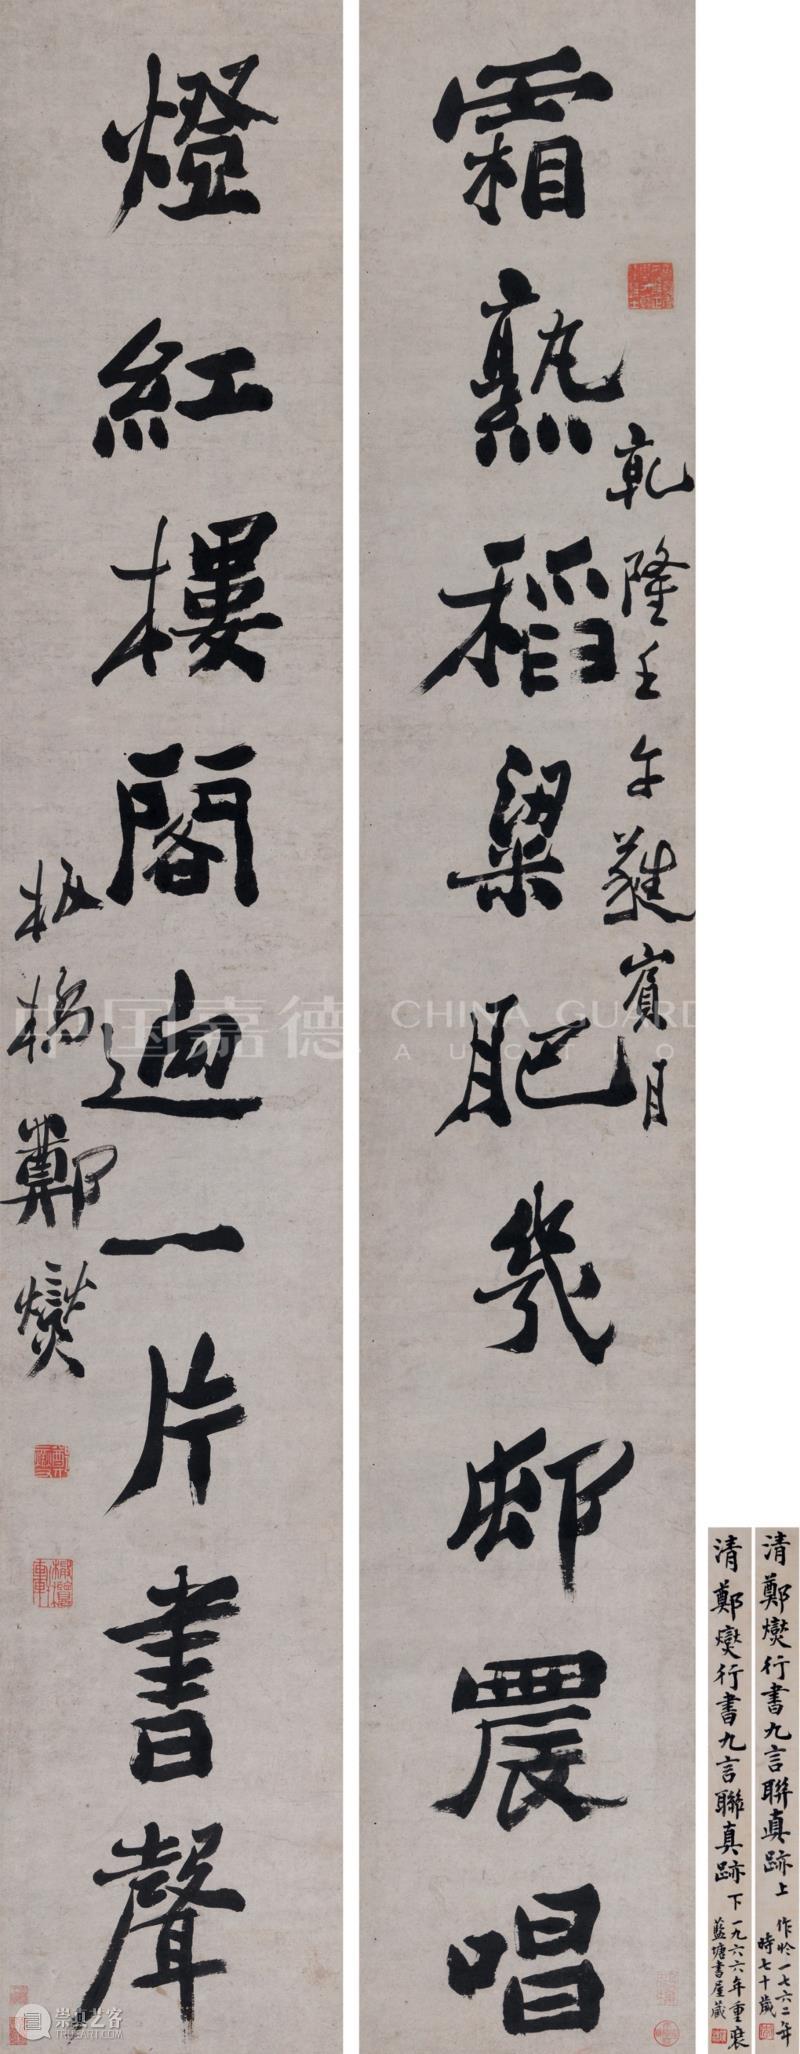 霜熟稻粱肥幾邨農唱
乾隆壬午蕤賓月
燈紅樓閣迥一片書聲
板橋鄭燮
清鄭燮行書九言聯真跡上
作於一七六二年
時七十歲
清鄭燮行書九言聯真跡下
一九六六年重裱
藍塘書屋藏
中国嘉德
CHINA GUARD
AUCTIO
崇真艺客